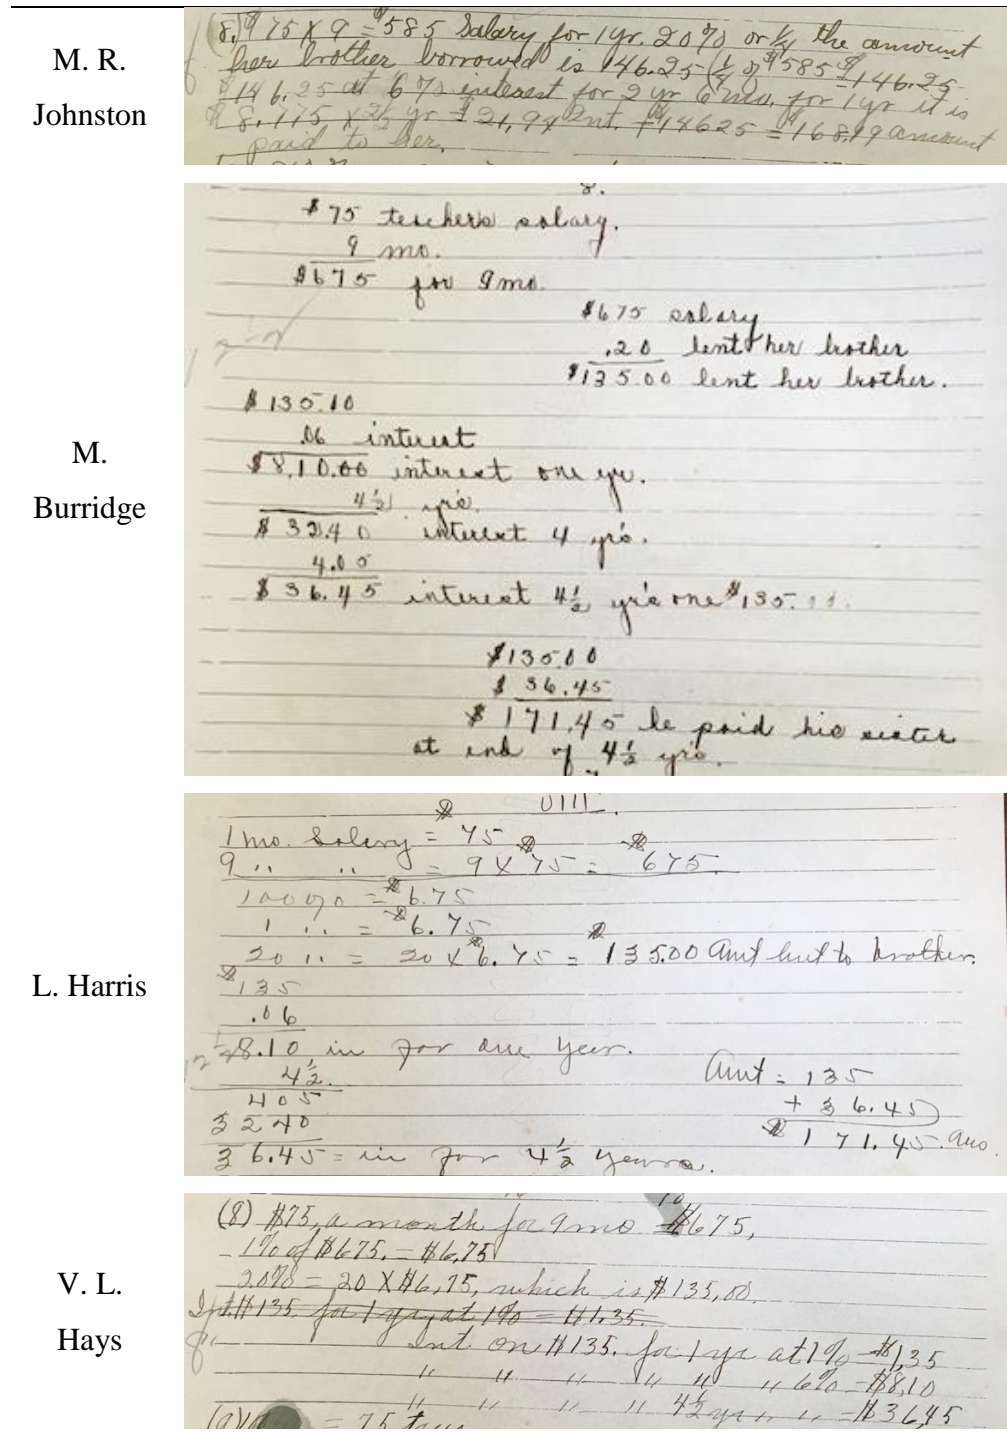 M. R.
Johnston
(8.) $75 X 9 = $585 Salary for 1 yr. 20% or 1/4 the amount
her brother borrowed is 146.25 (1/4 of $585 = $146.25
$146.25 at 6% interest for 2 yr 6 mo. for 1 yr it is
$8.775 X 2 1/2 yr = $21,94 Int. + $14625 = $168.19 amount
paid to her.
M.
Burridge
8.
$75 teachers salary.
9 mo.
$675 for 9 mo.
$675 salary
.20 lent her brother
$135.00 lent her brother.
$135.10
.06 interest
$8.10.00 interest one yr.
4 1/2 yrs.
$32.40 interest 4 yrs.
4.05
$36.45 interest 4 1/2 yrs one $135.00.
$135.00
$36.45
$171.45 he paid his sister
at end of 4 1/2 yrs.
L. Harris
VIII.
1 mo. Salary = $75
9 " " = 9 X $75 = $675.
100% = $6.75
1 " = $6.75
20 " = 20 X $6.75 = $135.00 Amt lent to brother.
$135
.06
$8.10 in for one year.
4 1/2
405
3240
36.45 = in for 4 1/2 years.
Amt = 135
+ 36.45
$171.45. ans
V. L.
Hays
(8) $75, a month for 9 mo = $675,
1% of $675. = $6,75
20% = 20 X $6,75, which is $135,00.
Int. $135 for 1 yr, at 1% = $1.35.
Int on $135. for 1 yr at 1% = $1,35
" " " " " " 6% = $8,10
" " " " 4 1/2 yr " " = $36,45
= 75 tons